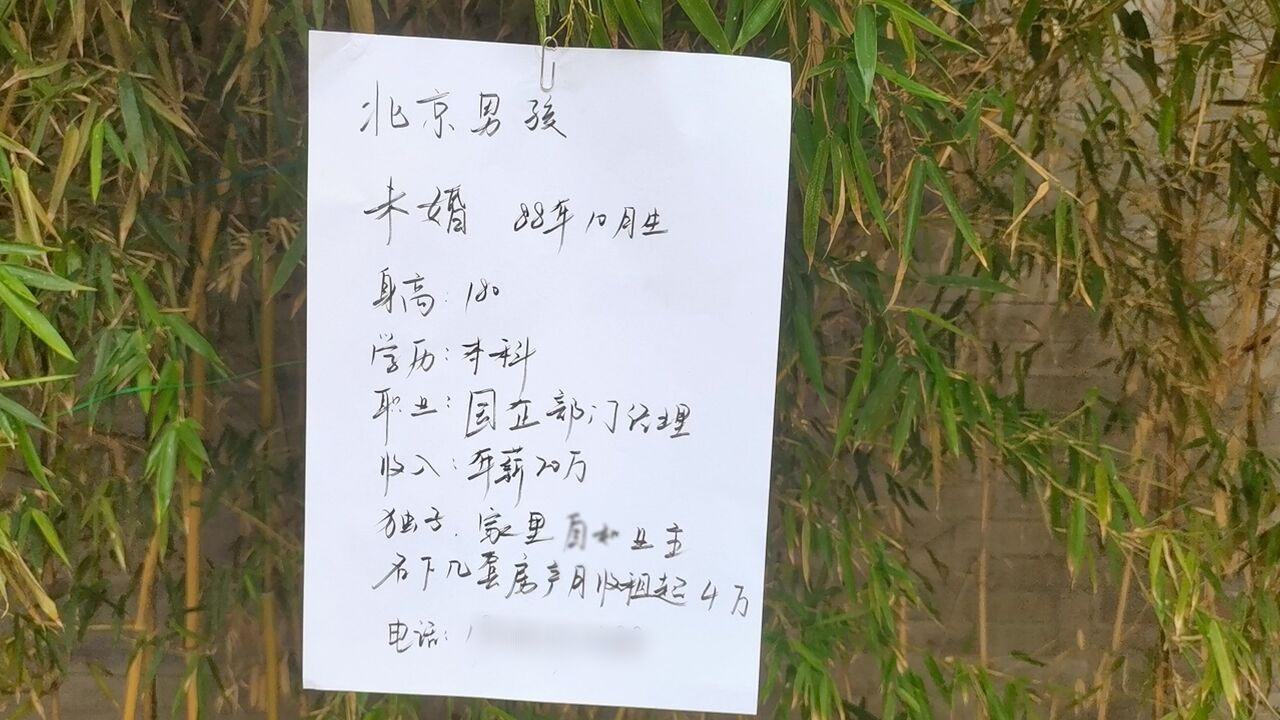 北京男孩
未婚 88年10月生
身高:180
学历:本科
职业:国企部门经理
收入:年薪20万
独子.家里 业主
名下几套房产月收租超4万
电话: